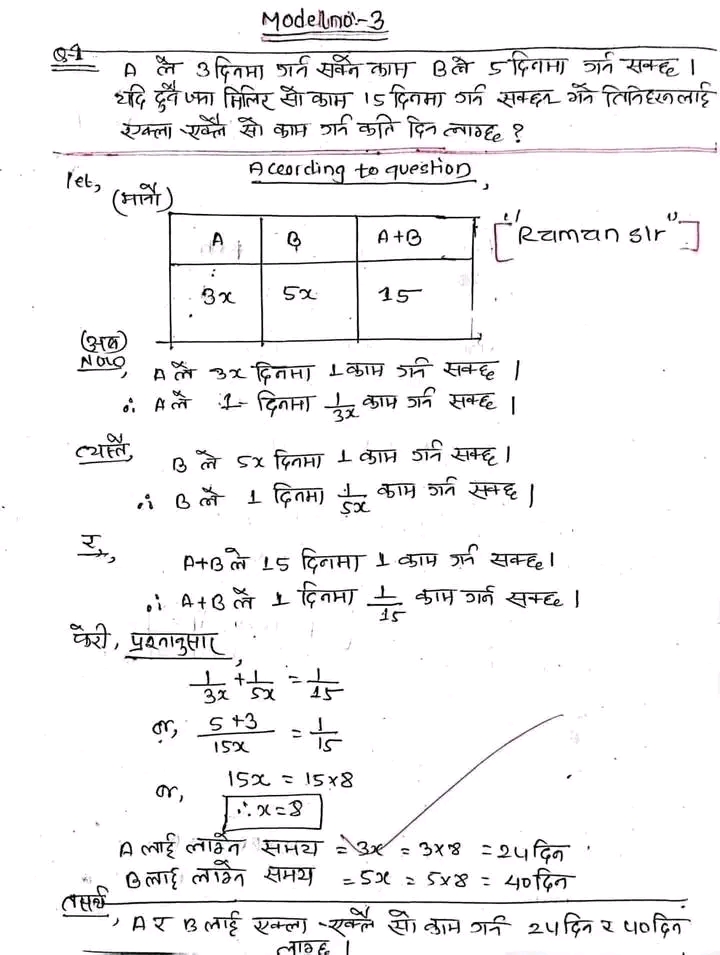 Model no:-3
Q.1 A ले 3 दिनमा गर्न सक्ने काम B ले 5 दिनमा गर्न सक्छ ।
यदि दुवै जना मिलिर सो काम 15 दिनमा गर्न सक्छन भने तिनिहरूलाई
एक्ला-एक्लै सो काम गर्न कति दिन लाग्छ ?
According to question,
let, (मानौ)
A B A+B
["Raman sir"]
3x 5x 15
(अब)
Now, A ले 3x दिनमा 1 काम गर्न सक्छ ।
∴ A ले 1 दिनमा 1/3x काम गर्न सक्छ ।
त्यस्तै, B ले 5x दिनमा 1 काम गर्न सक्छ ।
∴ B ले 1 दिनमा 1/5x काम गर्न सक्छ ।
र, A+B ले 15 दिनमा 1 काम गर्न सक्छ ।
∴ A+B ले 1 दिनमा 1/15 काम गर्न सक्छ ।
फेरी, प्रश्नानुसार,
1/3x + 1/5x = 1/15
or, 5+3/15x = 1/15
or, 15x = 15×8
∴ x = 8
A लाई लाग्ने समय = 3x = 3×8 = 24 दिन
B लाई लाग्ने समय = 5x = 5×8 = 40 दिन
तसर्थ, A र B लाई एक्ला-एक्लै सो काम गर्न 24 दिन र 40 दिन
लाग्छ ।